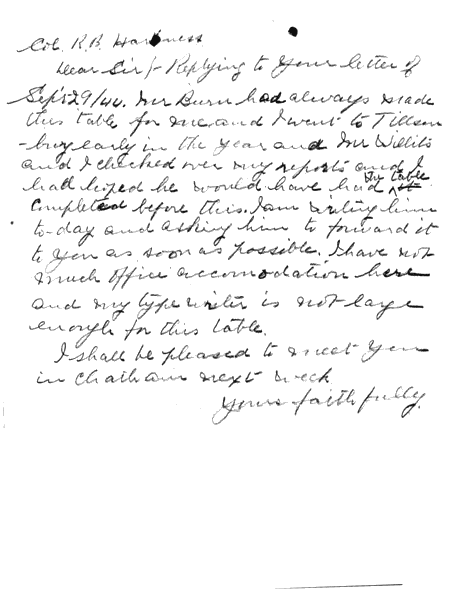 Col. R.B. Harkness
Dear Sir/- Replying to Your letter of
Sept 29/44. Mr Burn had always made
this table for me and I went to Tillson
-burg early in the year and Mr Willits
and I checked over my reports and I
had hoped he would have had the table
completed before this. I am writing him
to-day and asking him to forward it
to you as soon as possible. I have not
much office accomodation here
and my type writer is not large
enough for this table.
I shall be pleased to meet you
in Chatham next week
Yours faithfully.